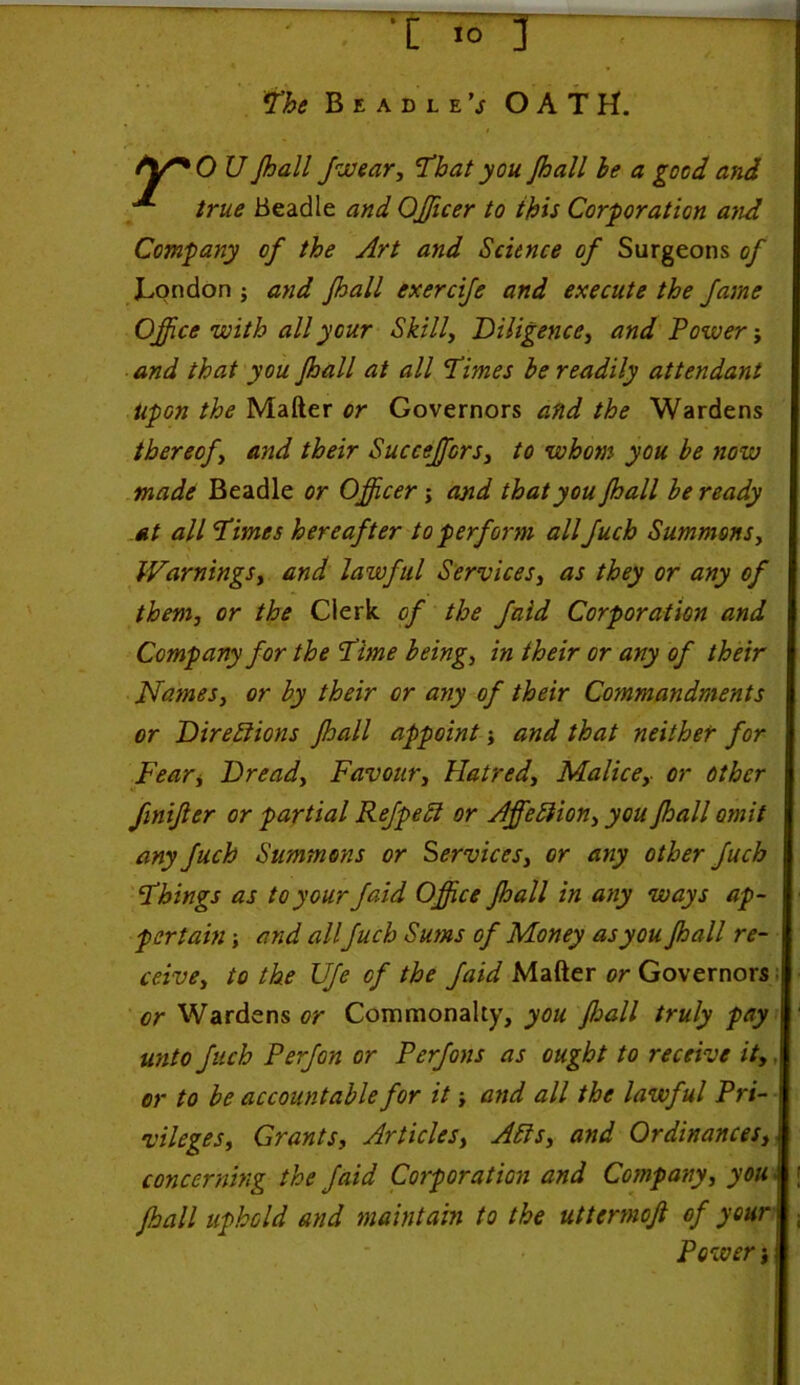 [ 10 ]
The BEADLE's OATH.
YOU ſhall ſwear, That you ſhall be a good and
true Beadle and Officer to this Corporation and
Company of the Art and Science of Surgeons of
London; and ſhall exerciſe and execute the ſame
Office with all your Skill, Diligence, and Power;
and that you ſhall at all Times be readily attendant
upon the Maſter or Governors and the Wardens
thereof, and their Succeſſors, to whom you be now
made Beadle or Officer; and that you ſhall be ready
at all Times hereafter to perform all ſuch Summons,
Warnings, and lawful Services, as they or any of
them, or the Clerk of the ſaid Corporation and
Company for the Time being, in their or any of their
Names, or by their or any of their Commandments
or Directions ſhall appoint; and that neither for
Fear, Dread, Favour, Hatred, Malice, or other
ſiniſter or partial Reſpect or Affection, you ſhall omit
any ſuch Summons or Services, or any other ſuch
Things as to your ſaid Office ſhall in any ways ap-
pertain; and all ſuch Sums of Money as you ſhall re-
ceive, to the Uſe of the ſaid Maſter or Governors
or Wardens or Commonalty, you ſhall truly pay
unto ſuch Perſon or Perſons as ought to receive it,
or to be accountable for it; and all the lawful Pri-
vileges, Grants, Articles, Acts, and Ordinances,
concerning the ſaid Corporation and Company, you
ſhall uphold and maintain to the uttermoſt of your
Power;